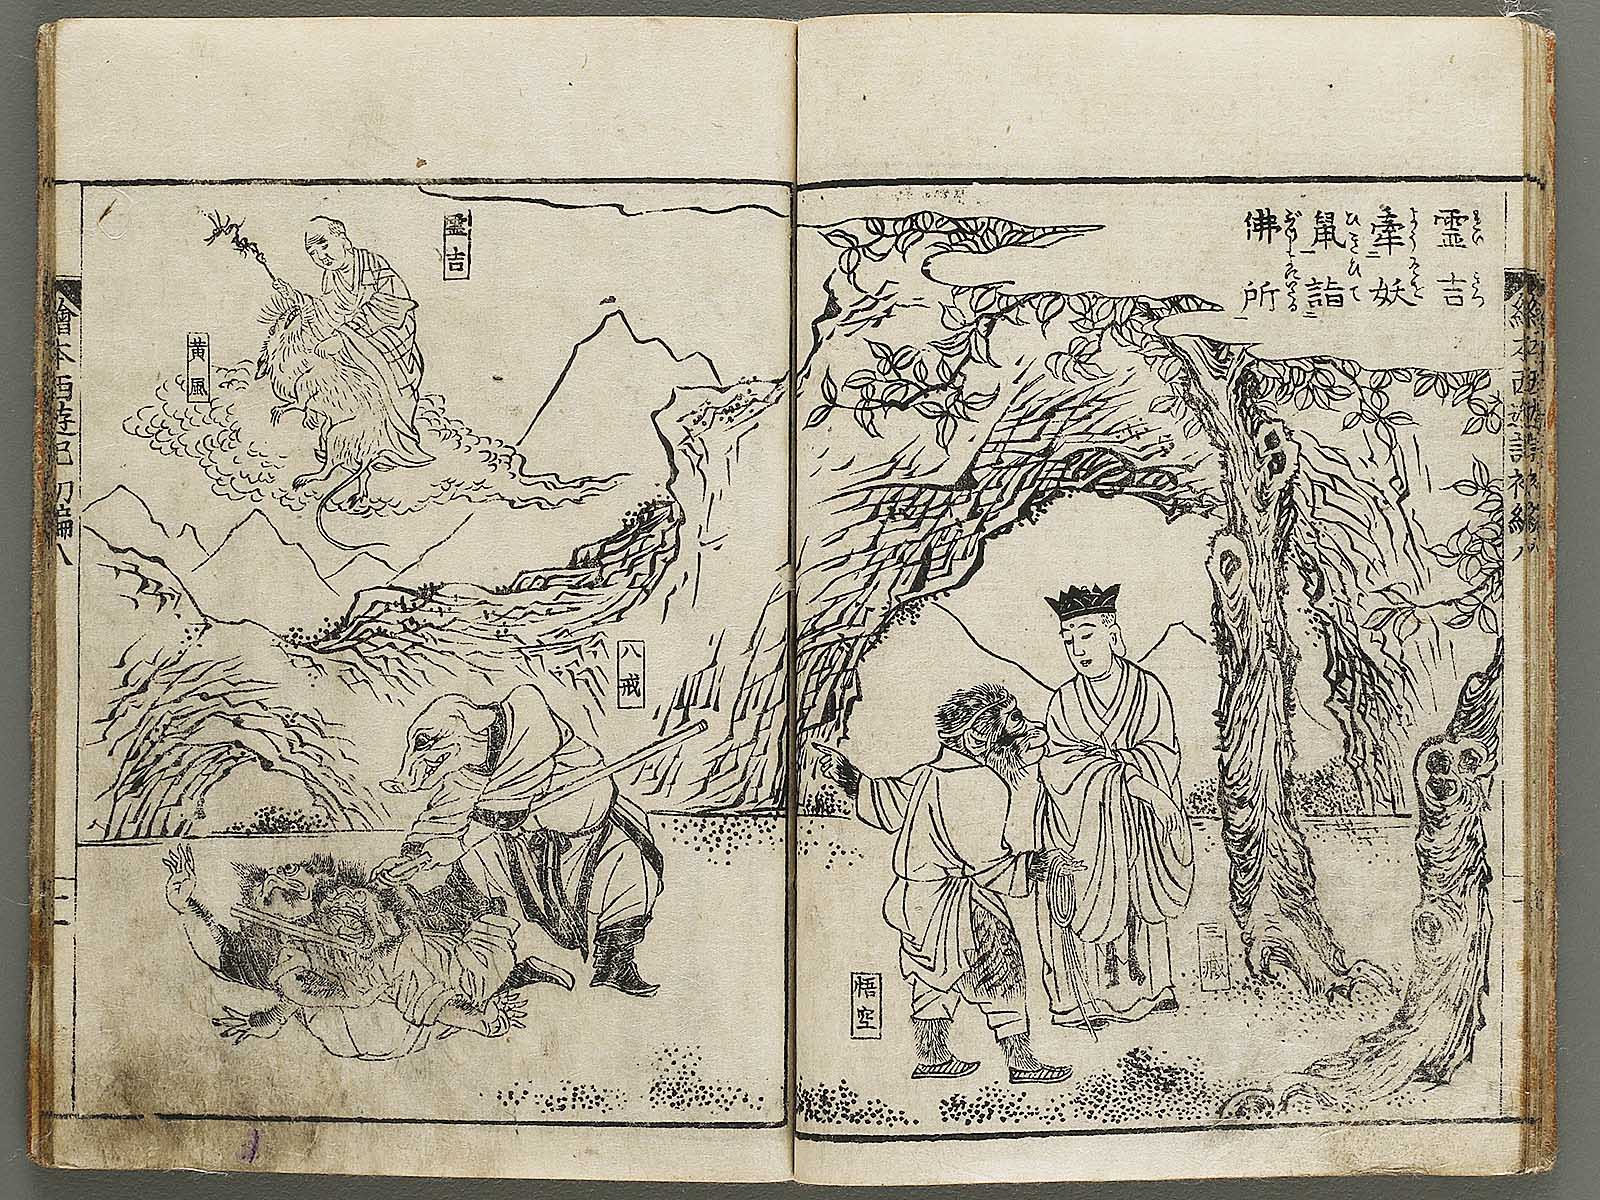 霊吉
牽妖
鼠詣
佛所
三蔵
悟空
霊吉
黄風
八戒
繪本西遊記初編八
繪本西遊記初編八